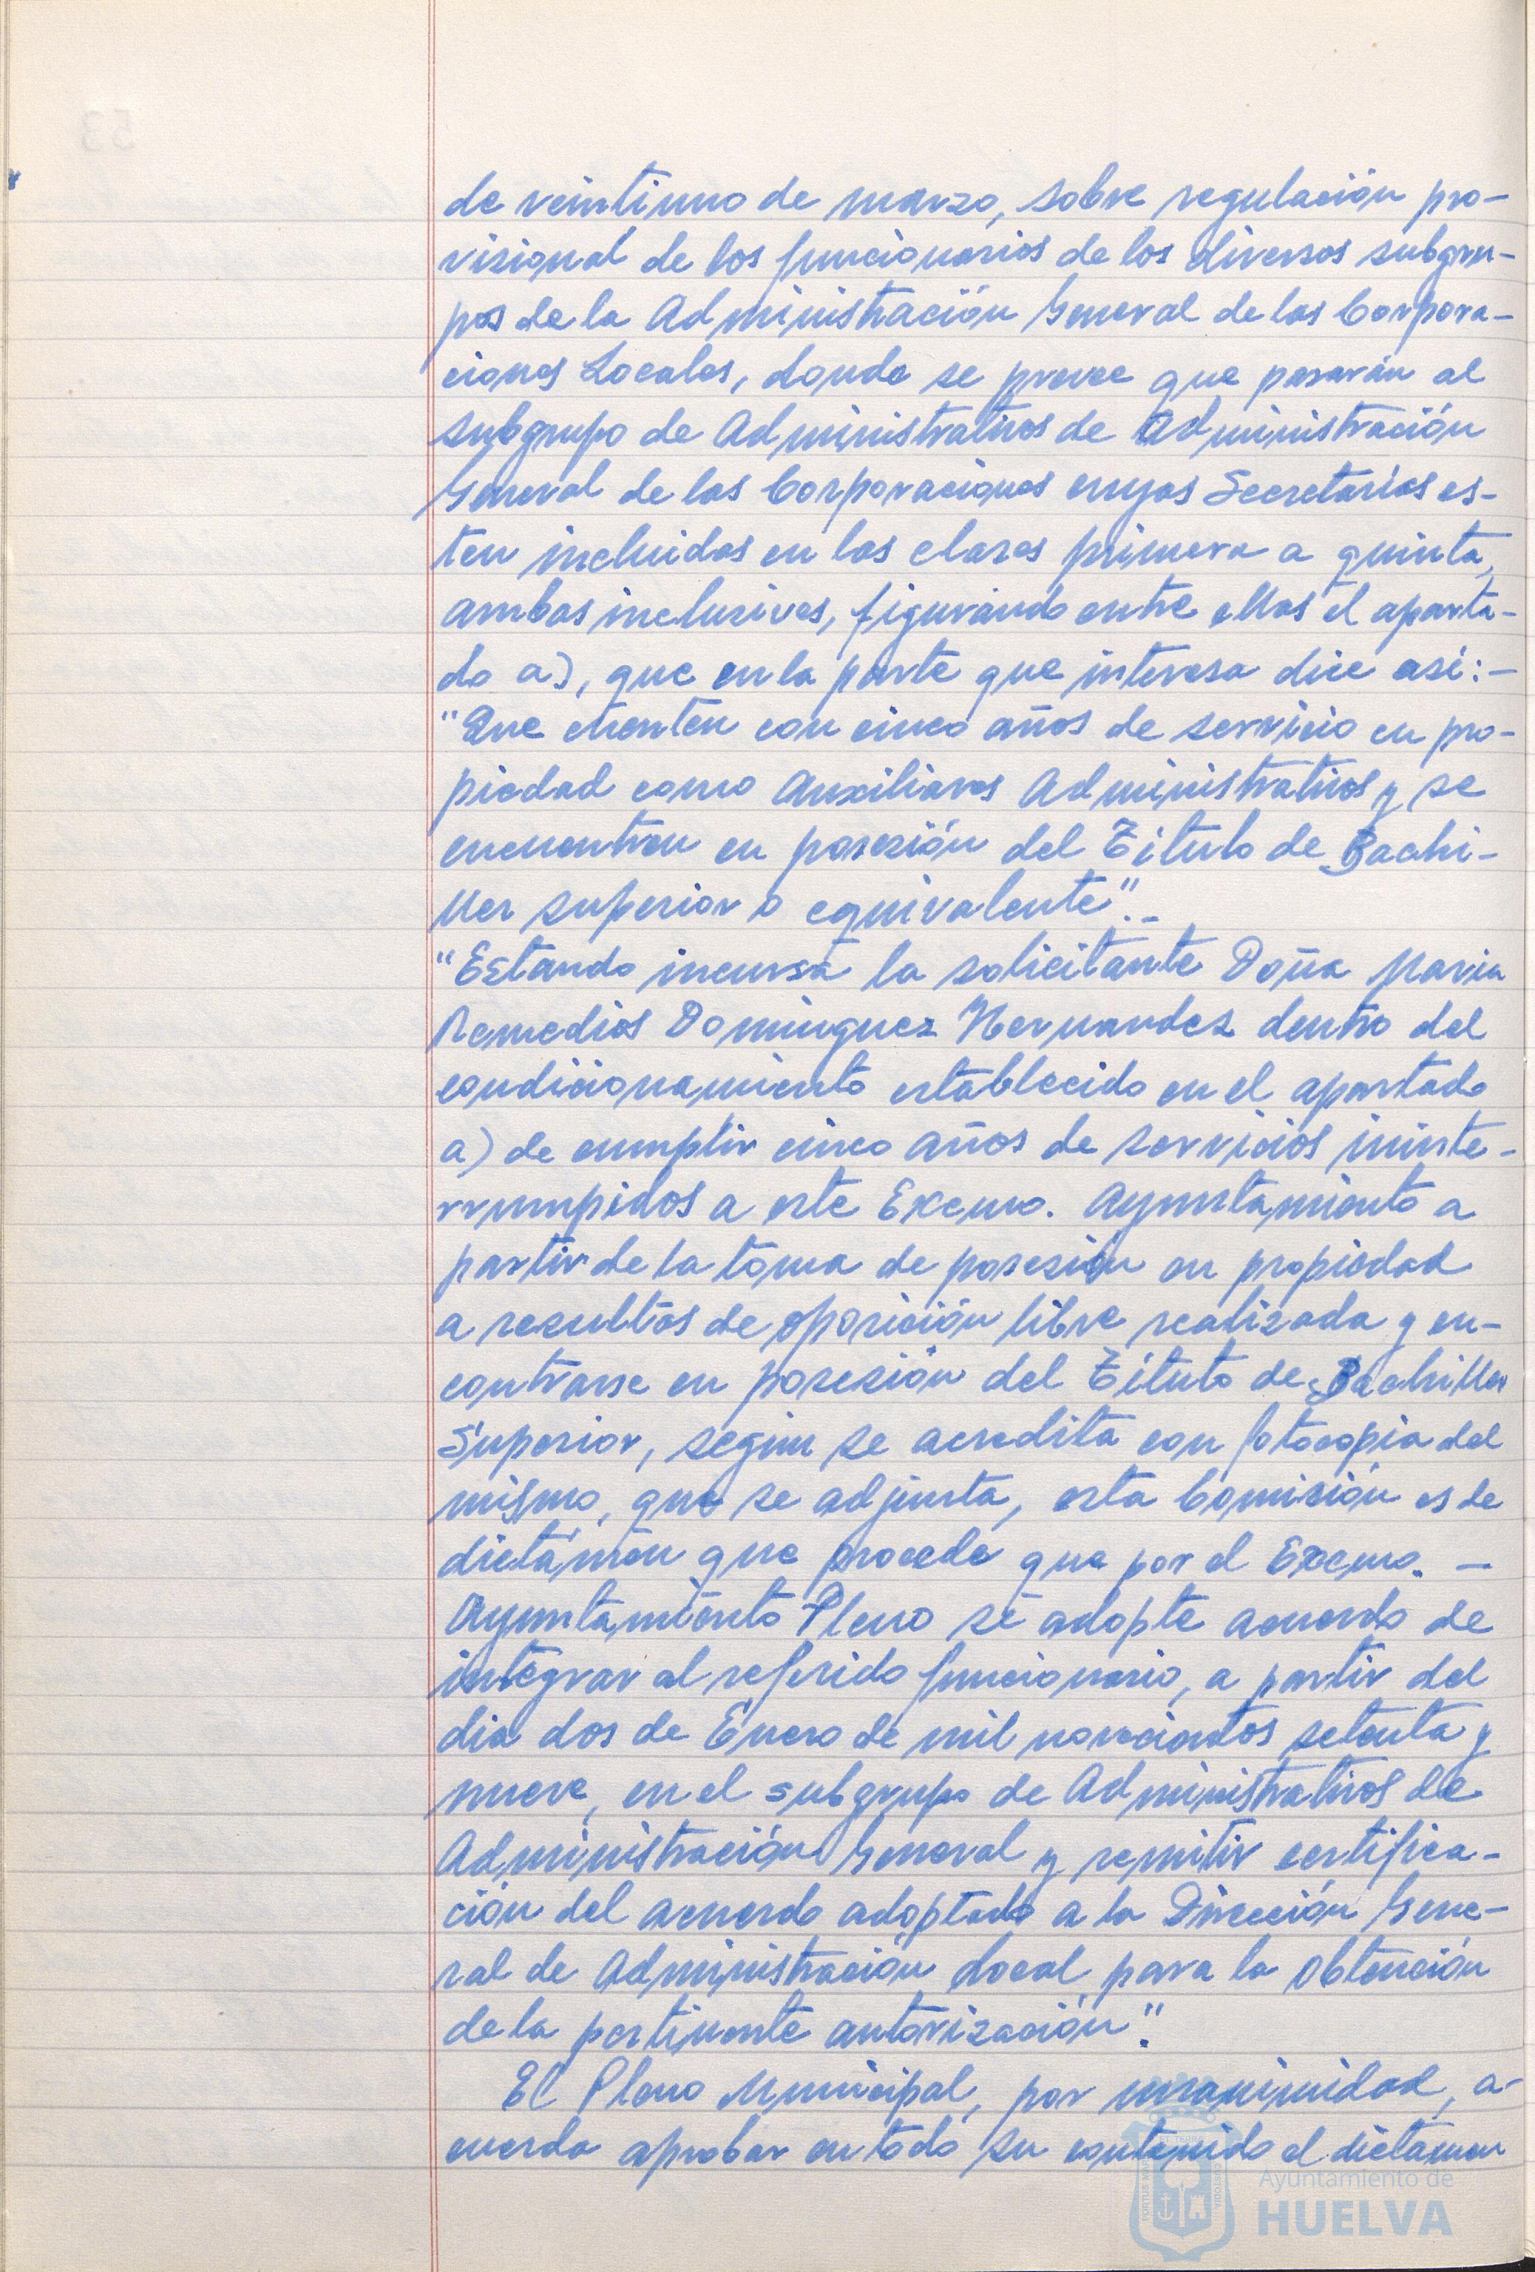 de veintiuno de marzo, sobre regulación pro-
visional de los funcionarios de los diversos subgru-
pos de la Administración General de las Corpora-
ciones Locales, donde se prevee que pasarán al
subgrupo de Administrativos de Administración
General de las Corporaciones cuyas Secretarías es-
ten incluidas en las clases primera a quinta,
ambas inclusives, figurando entre ellas el aparta-
do a), que en la parte que interesa dice así:-
"Que cuenten con cinco años de servicio en pro-
piedad como Auxiliares Administrativos y se
encuentren en posesión del Título de Bachi-
ller superior o equivalente".-
"Estando incursa la solicitante Doña Maria
Remedios Dominguez Hernandez dentro del
condicionamiento establecido en el apartado
a) de cumplir cinco años de servicios ininte-
rrumpidos a este Excmo. Ayuntamiento a
partir de la toma de posesión en propiedad
a resultas de oposición libre realizada y en-
contrarse en posesión del Título de Bachiller
Superior, segun se acredita con fotocopia del
mismo, que se adjunta, esta Comisión es de
dictámen que procede que por el Excmo. -
Ayuntamiento Pleno se adopte acuerdo de
integrar al referido funcionario, a partir del
dia dos de Enero de mil novecientos setenta y
nueve, en el subgrupo de Administrativos de
Administración General y remitir certifica-
ción del acuerdo adoptado a la Dirección Gene-
ral de Administración Local para la obtención
de la pertinente autorización".
El Pleno Municipal, por unanimidad, a-
cuerda aprobar en todo su contenido el dictamen
Ayuntamiento de
HUELVA